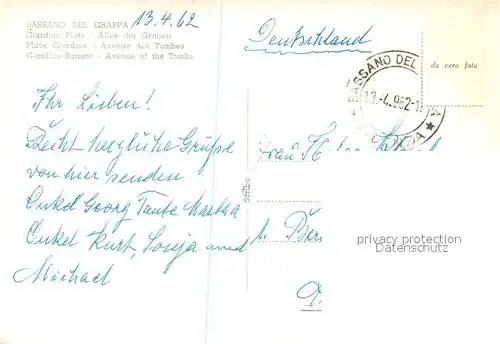 BASSANO DEL GRAPPA
13.4.62
Giardino Platz - Allee der Graben
Place Giardino - Avenue des Tombes
Giardino-Square - Avenue of the Tombs
Deutschland
da vera foto
BASSANO DEL
13.-4.962-1
Ihr Lieben!
Recht herzliche Grüße
von hier senden
Onkel Georg Tante Martha
Onkel Kurt, Sonja und
Michael
Frau
Ber
privacy protection
www.oldthing.de